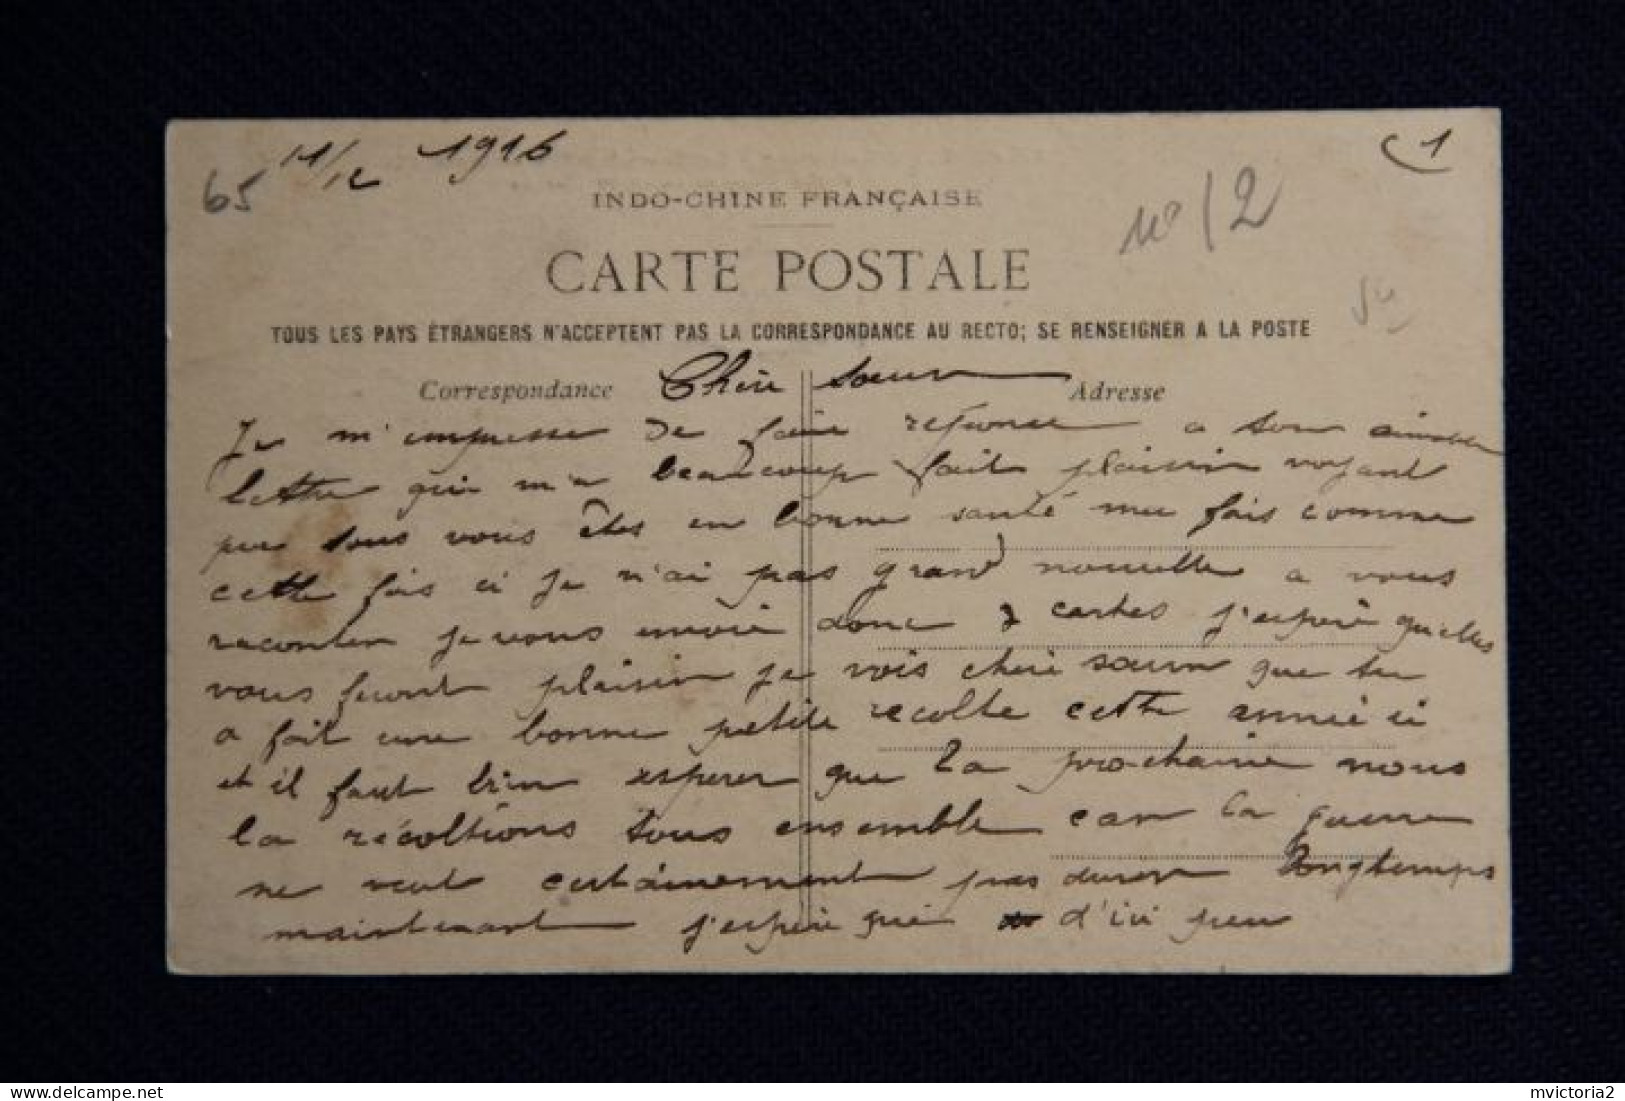 65 11/12 1916
1
INDO-CHINE FRANÇAISE
N° 12
CARTE POSTALE
TOUS LES PAYS ÉTRANGERS N'ACCEPTENT PAS LA CORRESPONDANCE AU RECTO; SE RENSEIGNER A LA POSTE
Correspondance Chère soeur Adresse
Je m'empresse de faire reponce a ton aimable
lettre qui m'a beaucoup fait plaisir voyant
que tous vous êtes en bonne santé mes fois comme
cette fois ci je n'ai pas grand nouvelle a vous
raconter je vous envoie donc 2 cartes j'espère quelles
vous feront plaisir je vois chère soeur que tu
a fait une bonne petite recolte cette année ci
et il faut bien esperer que la prochaine nous
la récoltions tous ensemble car la guerre
ne veut certainement pas durer longtemps
maintenant j'espère que d'ici peu
mvictoria2